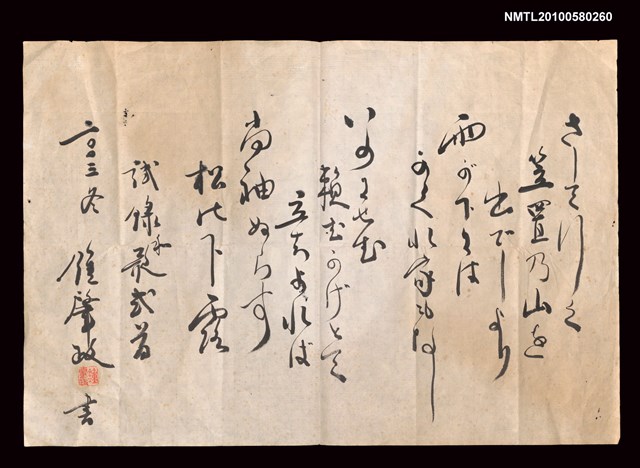 NMTL20100580260
さして行く
笠置の山を
出でしより
雨が下には
かくれ家もなし
いかにせむ
頼むかげとて
立ちよれば
尚袖ぬらす
松の下露
試錄和歌弐首
肇政
書